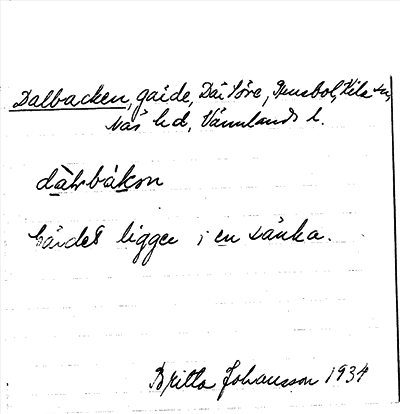 Dalbacken, gärde, Dalsöre, Brunsbol, Kila sn,
Näs hd, Värmlands l.
dàlvbákən
Gärdet ligger i en sänka.
Britta Johansson 1934